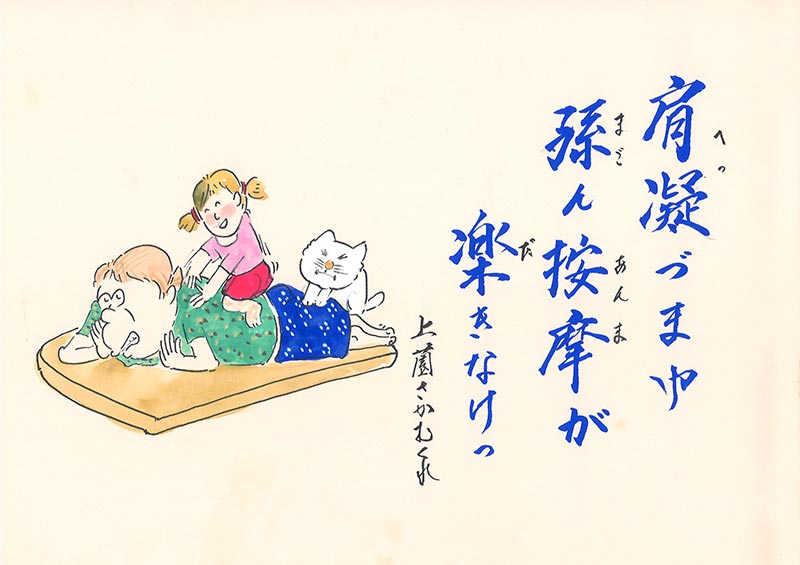 肩凝づまゆ
へっ
孫ん按摩が
まご
あんま
楽きなけっ
だ
上薗さかむくれ